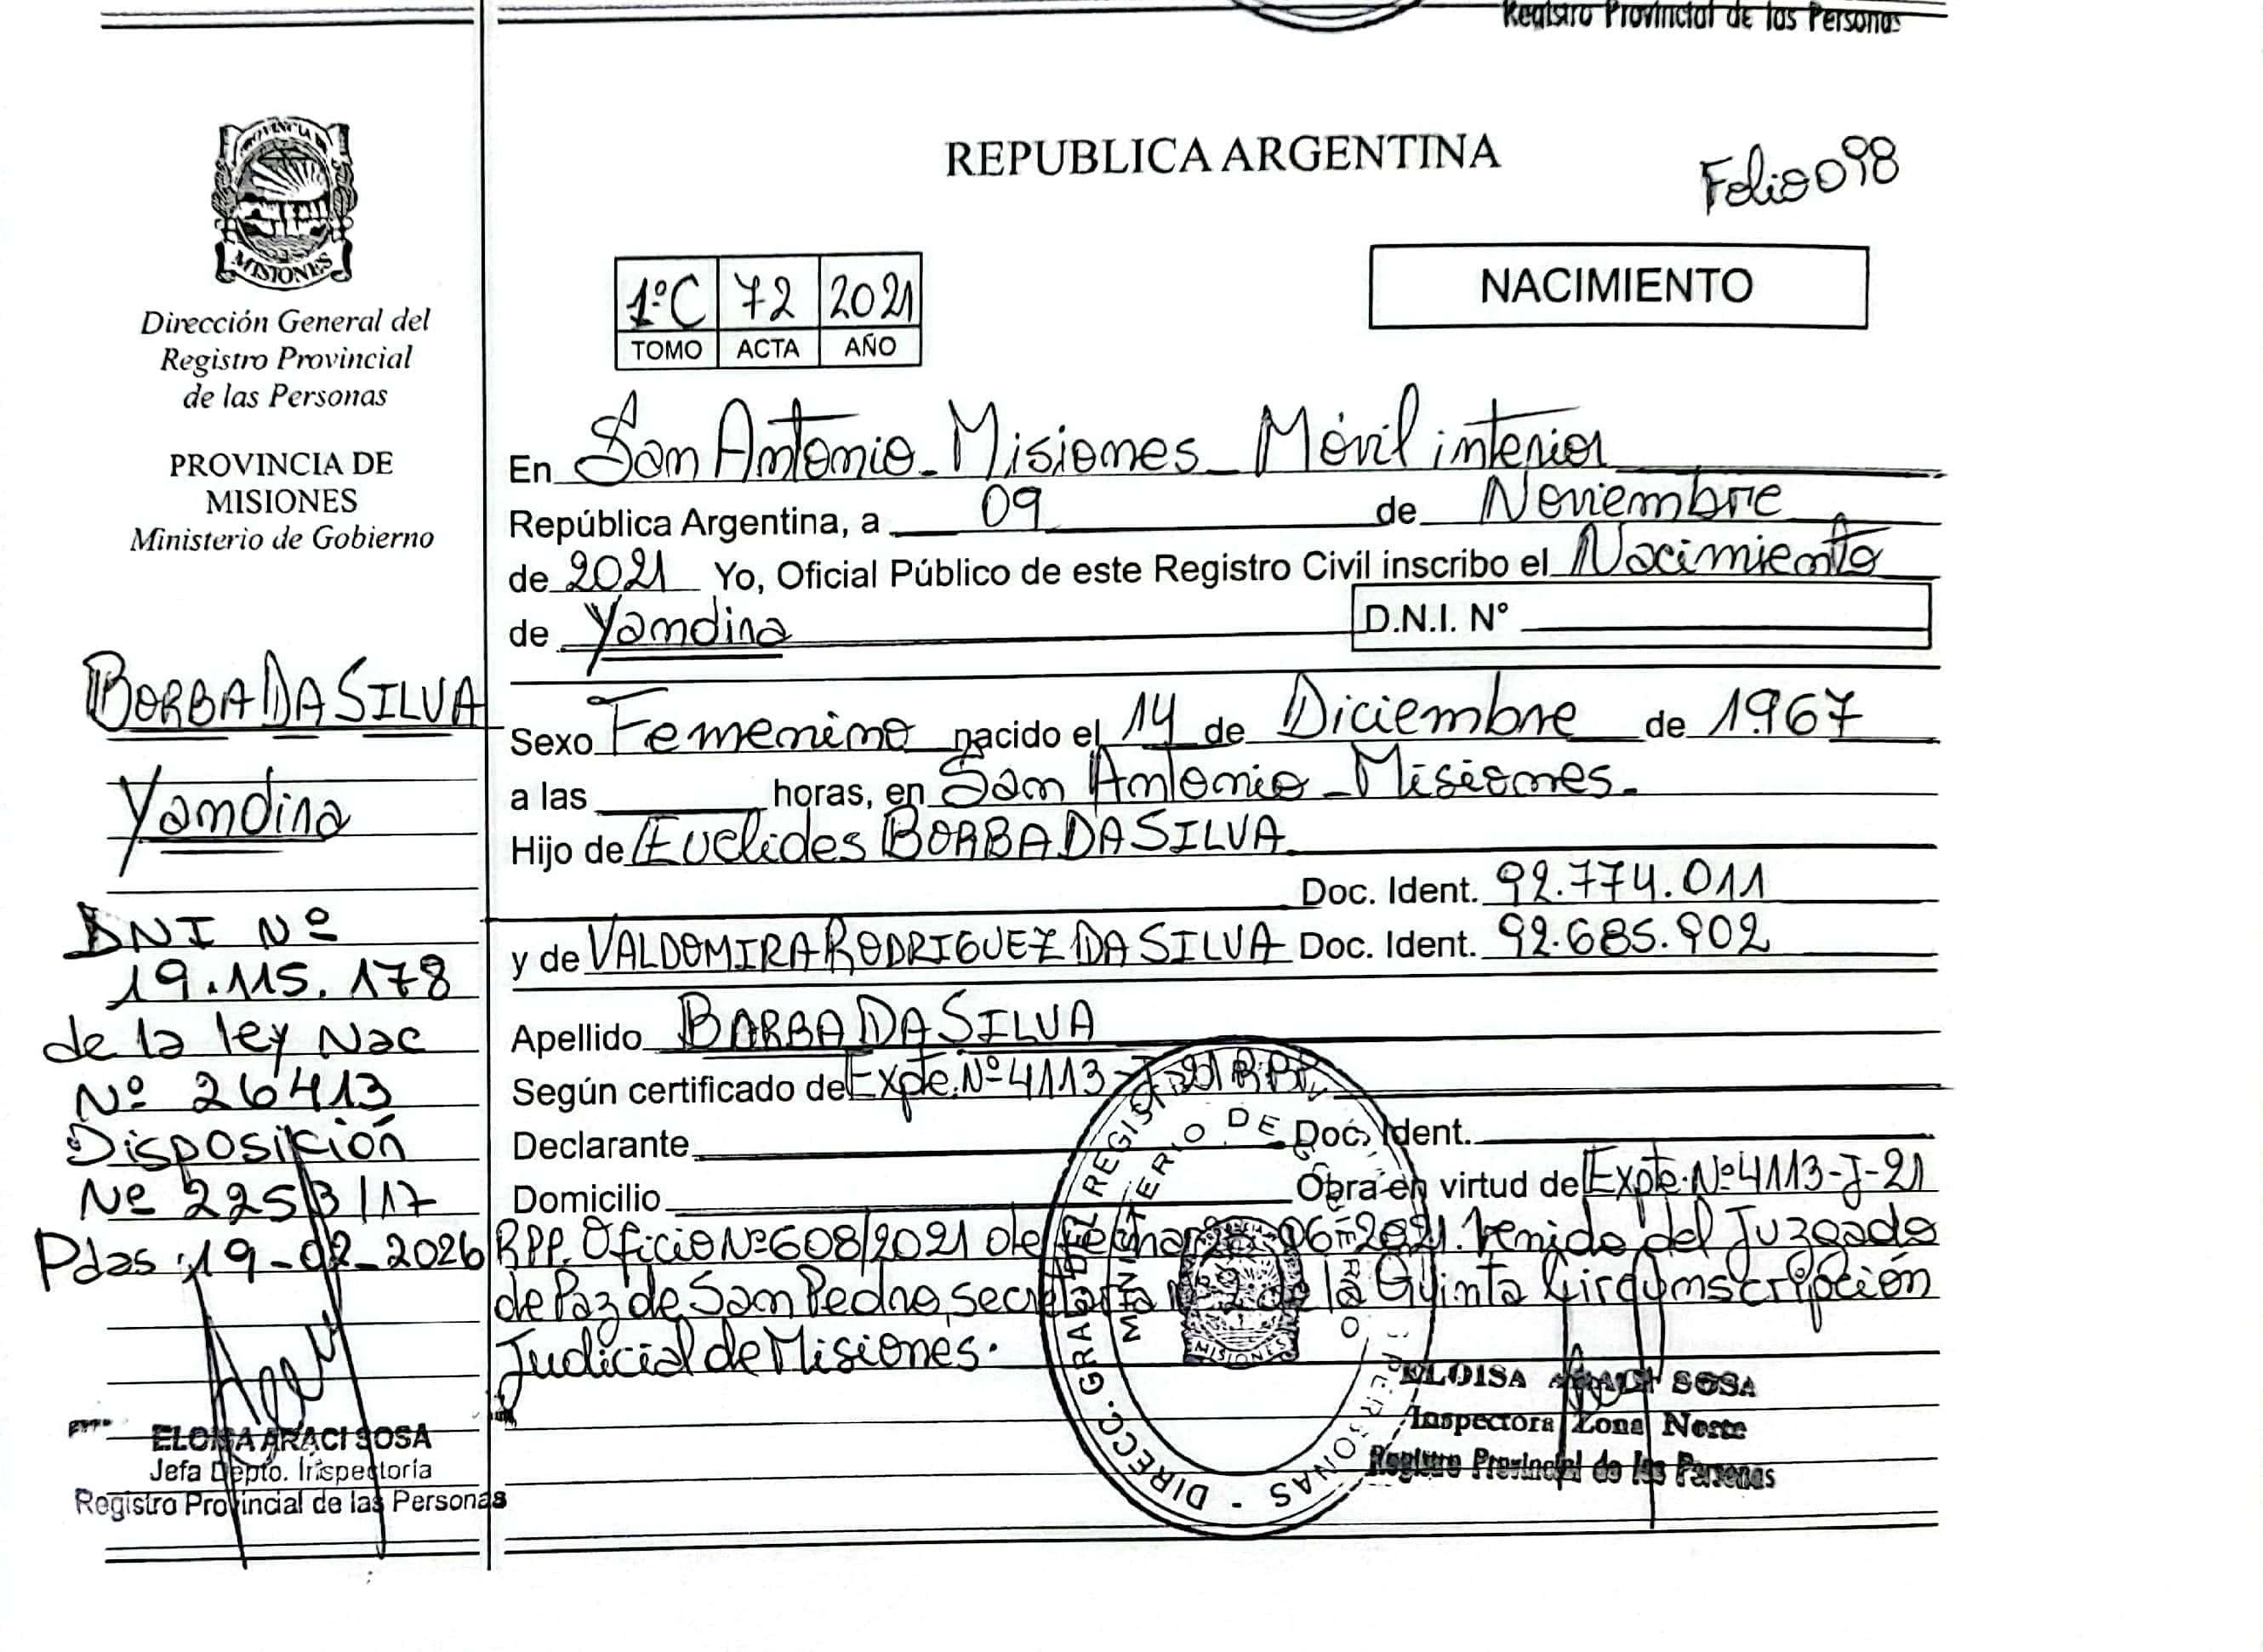 Registro Provincial de las Personas
PROVINCIA DE
MISIONES
Dirección General del
Registro Provincial
de las Personas
PROVINCIA DE
MISIONES
Ministerio de Gobierno
BORBA DA SILVA
Yamdina
DNI Nº
19.115.178
de la ley Nac
Nº 26413
Disposición
Nº 2253/17
Pdas 19-02-2026
ELOISA ARACI SOSA
Jefa Depto. Inspectoría
Registro Provincial de las Personas
REPUBLICA ARGENTINA
Folio 098
NACIMIENTO
1ºC 72 2021
TOMO ACTA AÑO
En San Antonio - Misiones - Móvil interior
República Argentina, a 09 de Noviembre
de 2021 Yo, Oficial Público de este Registro Civil inscribo el Nacimiento
de Yamdina D.N.I. Nº
Sexo Femenino nacido el 14 de Diciembre de 1967
a las horas, en San Antonio - Misiones.
Hijo de Euclides BORBA DA SILVA
Doc. Ident. 92.774.011
y de VALDOMIRA RODRIGUEZ DA SILVA Doc. Ident. 92.685.902
Apellido BARBA DA SILVA
Según certificado de Expte. Nº 4113-J-21 R.P.P.
Declarante Doc. Ident.
Domicilio Obra en virtud de Expte. Nº 4113-J-21
RPP. Oficio Nº 608/2021 de fecha 06-2021. Venido del Juzgado
de Paz de San Pedro, secretaria de la Quinta Circumscripción
Judicial de Misiones.
DIRECC. GRAL. DEL REGISTRO PERSONAS
MINISTERIO DE GOBIERNO
MISIONES
ELOISA ARACI SOSA
Inspectora Zona Norte
Registro Provincial de las Personas